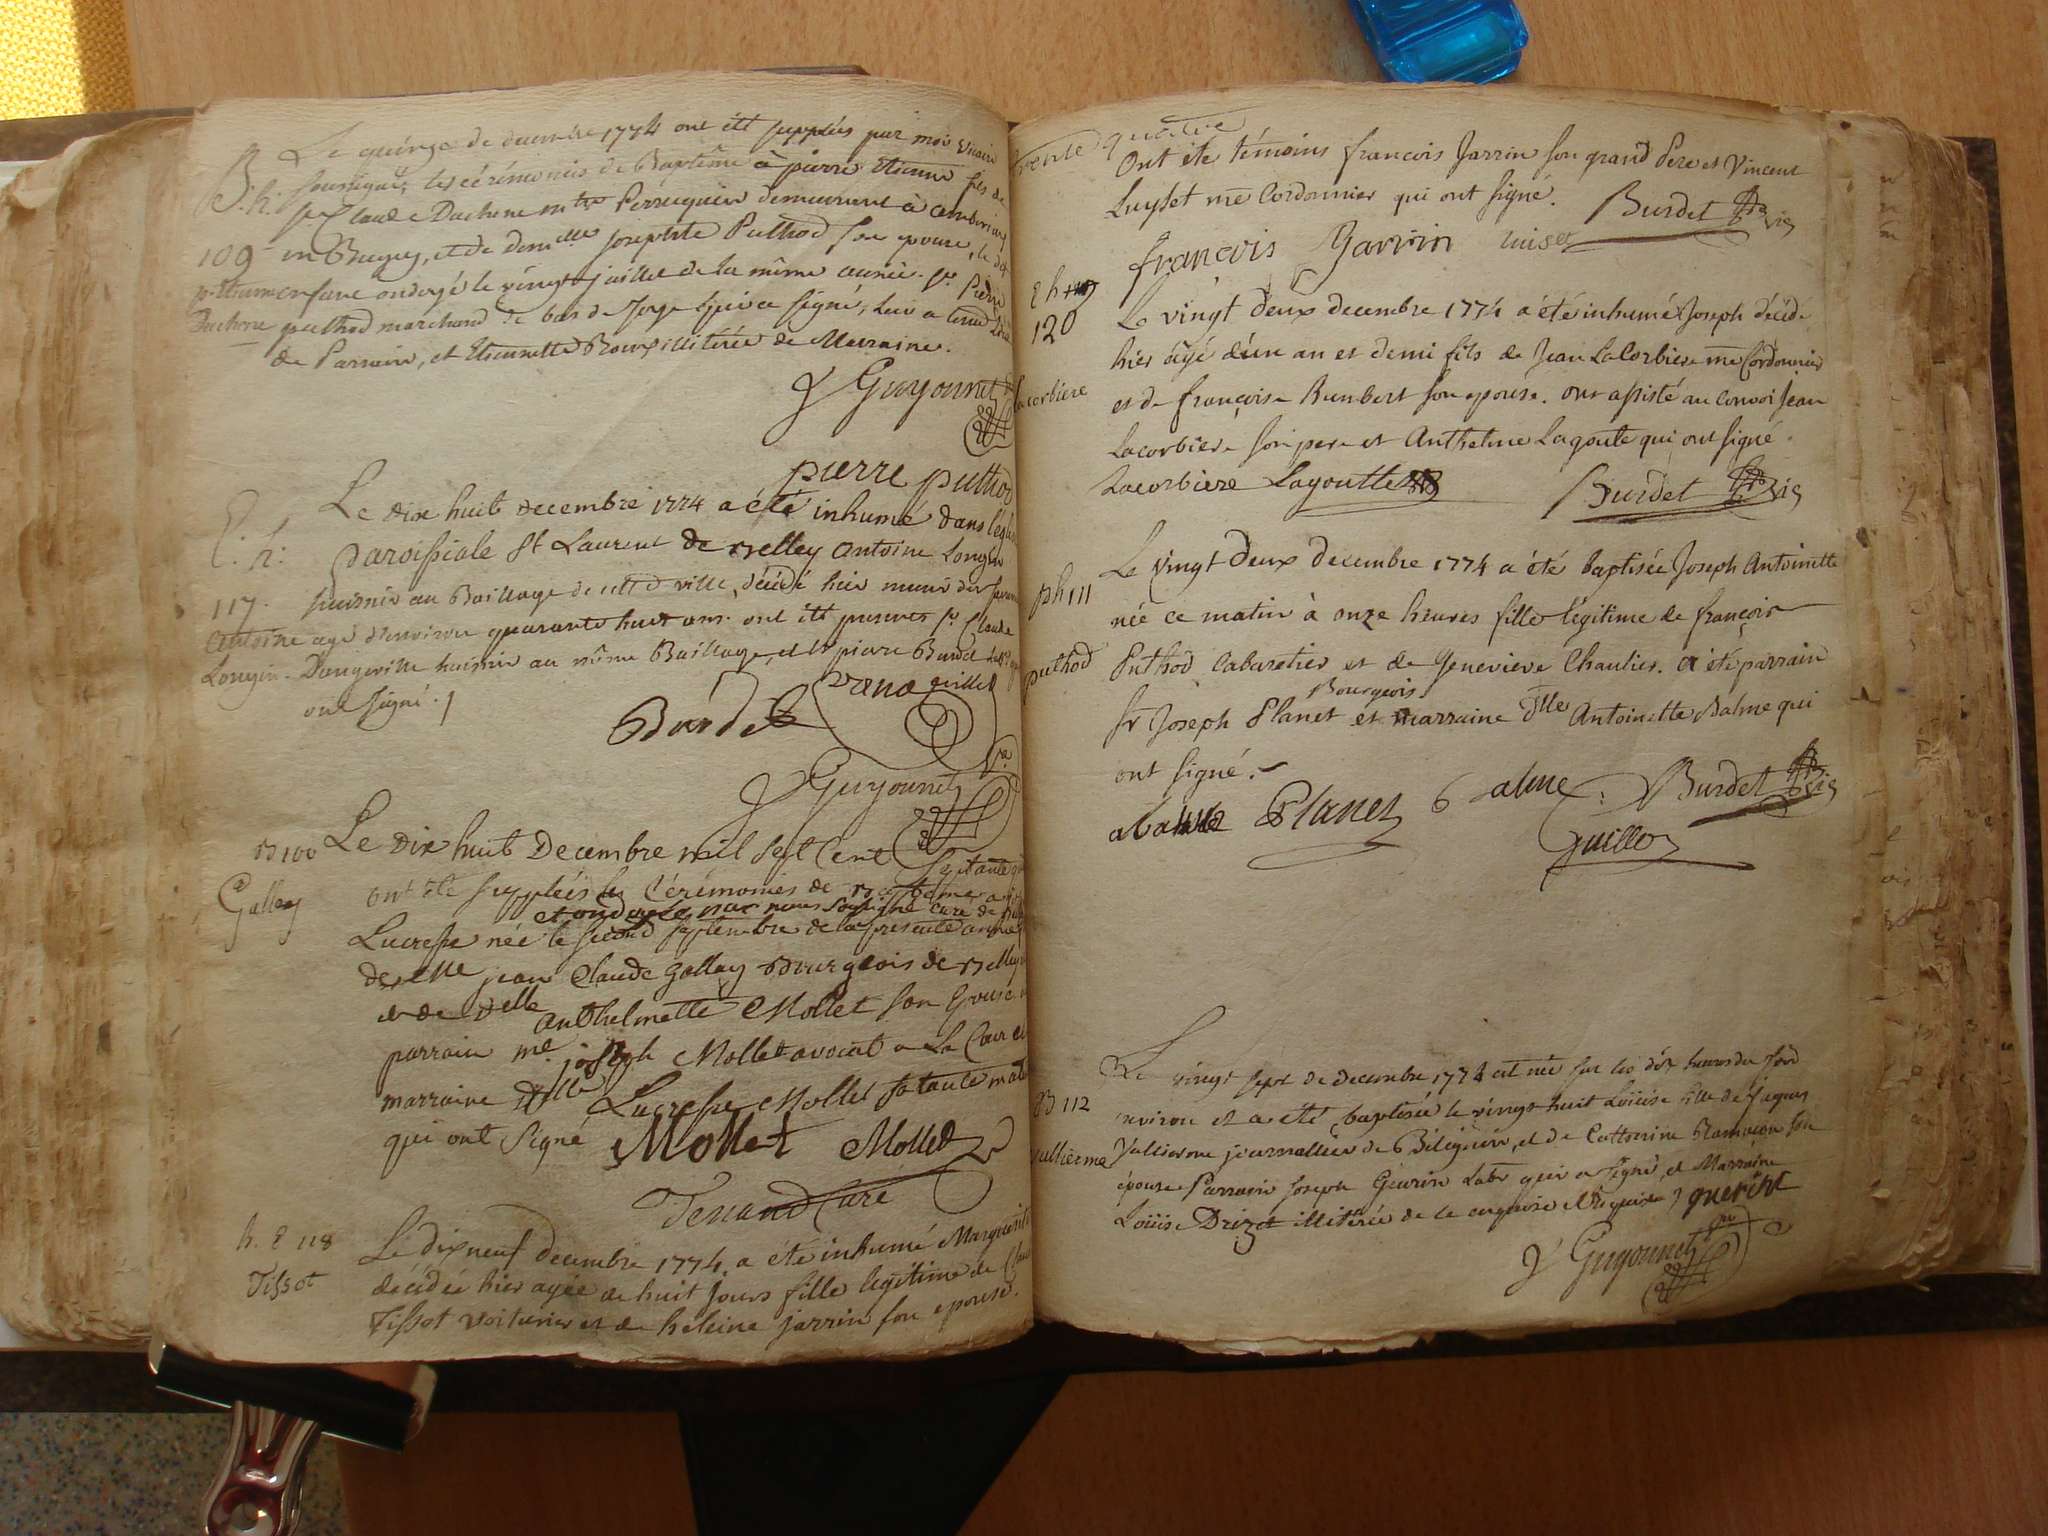 Le quinze de decembre 1774 ont été supplées par moi vicaire
B. h. soussigné, les cérémonies de Baptême à pierre Etienne fils de
sr Claude Duchene mtre Perruquier demeurant à
109 en Bugey, et de demlle Josephte Puthod son epouse, le dt
p. Etienne enfant ondoyé le vingt juillet de la même année. sr Pierre
Duchene puthod marchand de bas de qui a signé, lui a tenu lieu
de Parrain, et Etiennette illitérée de Marraine.
Guyonnet
pierre puthod
Le dix huit decembre 1774 a été inhumé dans l'église
E. h. paroissiale St Laurent de Belley Antoine Longin
117. huissier au Bailliage de cette ville, décédé hier muni des sacrem
Antoine agé d'environ quarante huit ans. ont été presents sr Claude
Longin. Dangeville huissier au même Bailliage, et sr pierre Burdet
ont signé.
Burdet Dangeville
Guyonnet
B 100 Le Dix huit Decembre mil sept Cent Septante
Galley ont été supplées les Cérémonies de Baptême a
et ondoyée par nous soussigné curé de
Lucresse née le second septembre de la présente année
de jean Claude Galley Bourgeois de Belley
et de Delle Anthelmette Mollet son Epouse
parrain me joseph Mollet avocat a La Cour et
marraine Delle Lucresse Mollet sa tante
qui ont signé Mollet Mollet
Curé
h. E 118 Le dix neuf decembre 1774. a été inhumé Marguerite
Tissot décédée hier agée de huit jours fille legitime de
Tissot voiturier et de héleine jarrin son epouse.
trente quatre
Ont été témoins francois Jarrin son grand Pere et Vincent
Luyset me Cordonnier qui ont signé. Burdet vic
francois Jarrin luiset
E h
120 Le vingt deux decembre 1774 a été inhumé Joseph décédé
hier âgé d'un an et demi fils de Jean LaCorbiere me Cordonnier
Lacorbiere et de françoise humbert son epouse. ont assisté au Convoi Jean
Lacorbiere son pere et Anthelme Lagoute qui ont signé.
Lacorbiere Lagoutte Burdet vic
Le vingt deux decembre 1774 a été baptisée Joseph Antoinette
ph 111 née ce matin à onze heures fille légitime de françois
puthod Puthod Cabaretier et de Genevieve Chaulier. a été parrain
Bourgeois
sr Joseph Planet et marraine Dlle Antoinette Balme qui
ont signé.
Planet balme Burdet vic
Guillot
Le vingt sept de decembre 1774 est née sur les dix heures du soir
B 112 environ et a été baptisée le vingt huit Loüise fille de Jaques
vullierme Vullierme journallier de Bilignin, et de Catherine son
épouse. Parrain Joseph Guerin Labr qui a signé, et Marraine
Loüise illitérée de ce enquise et requise guerint
Guyonnet